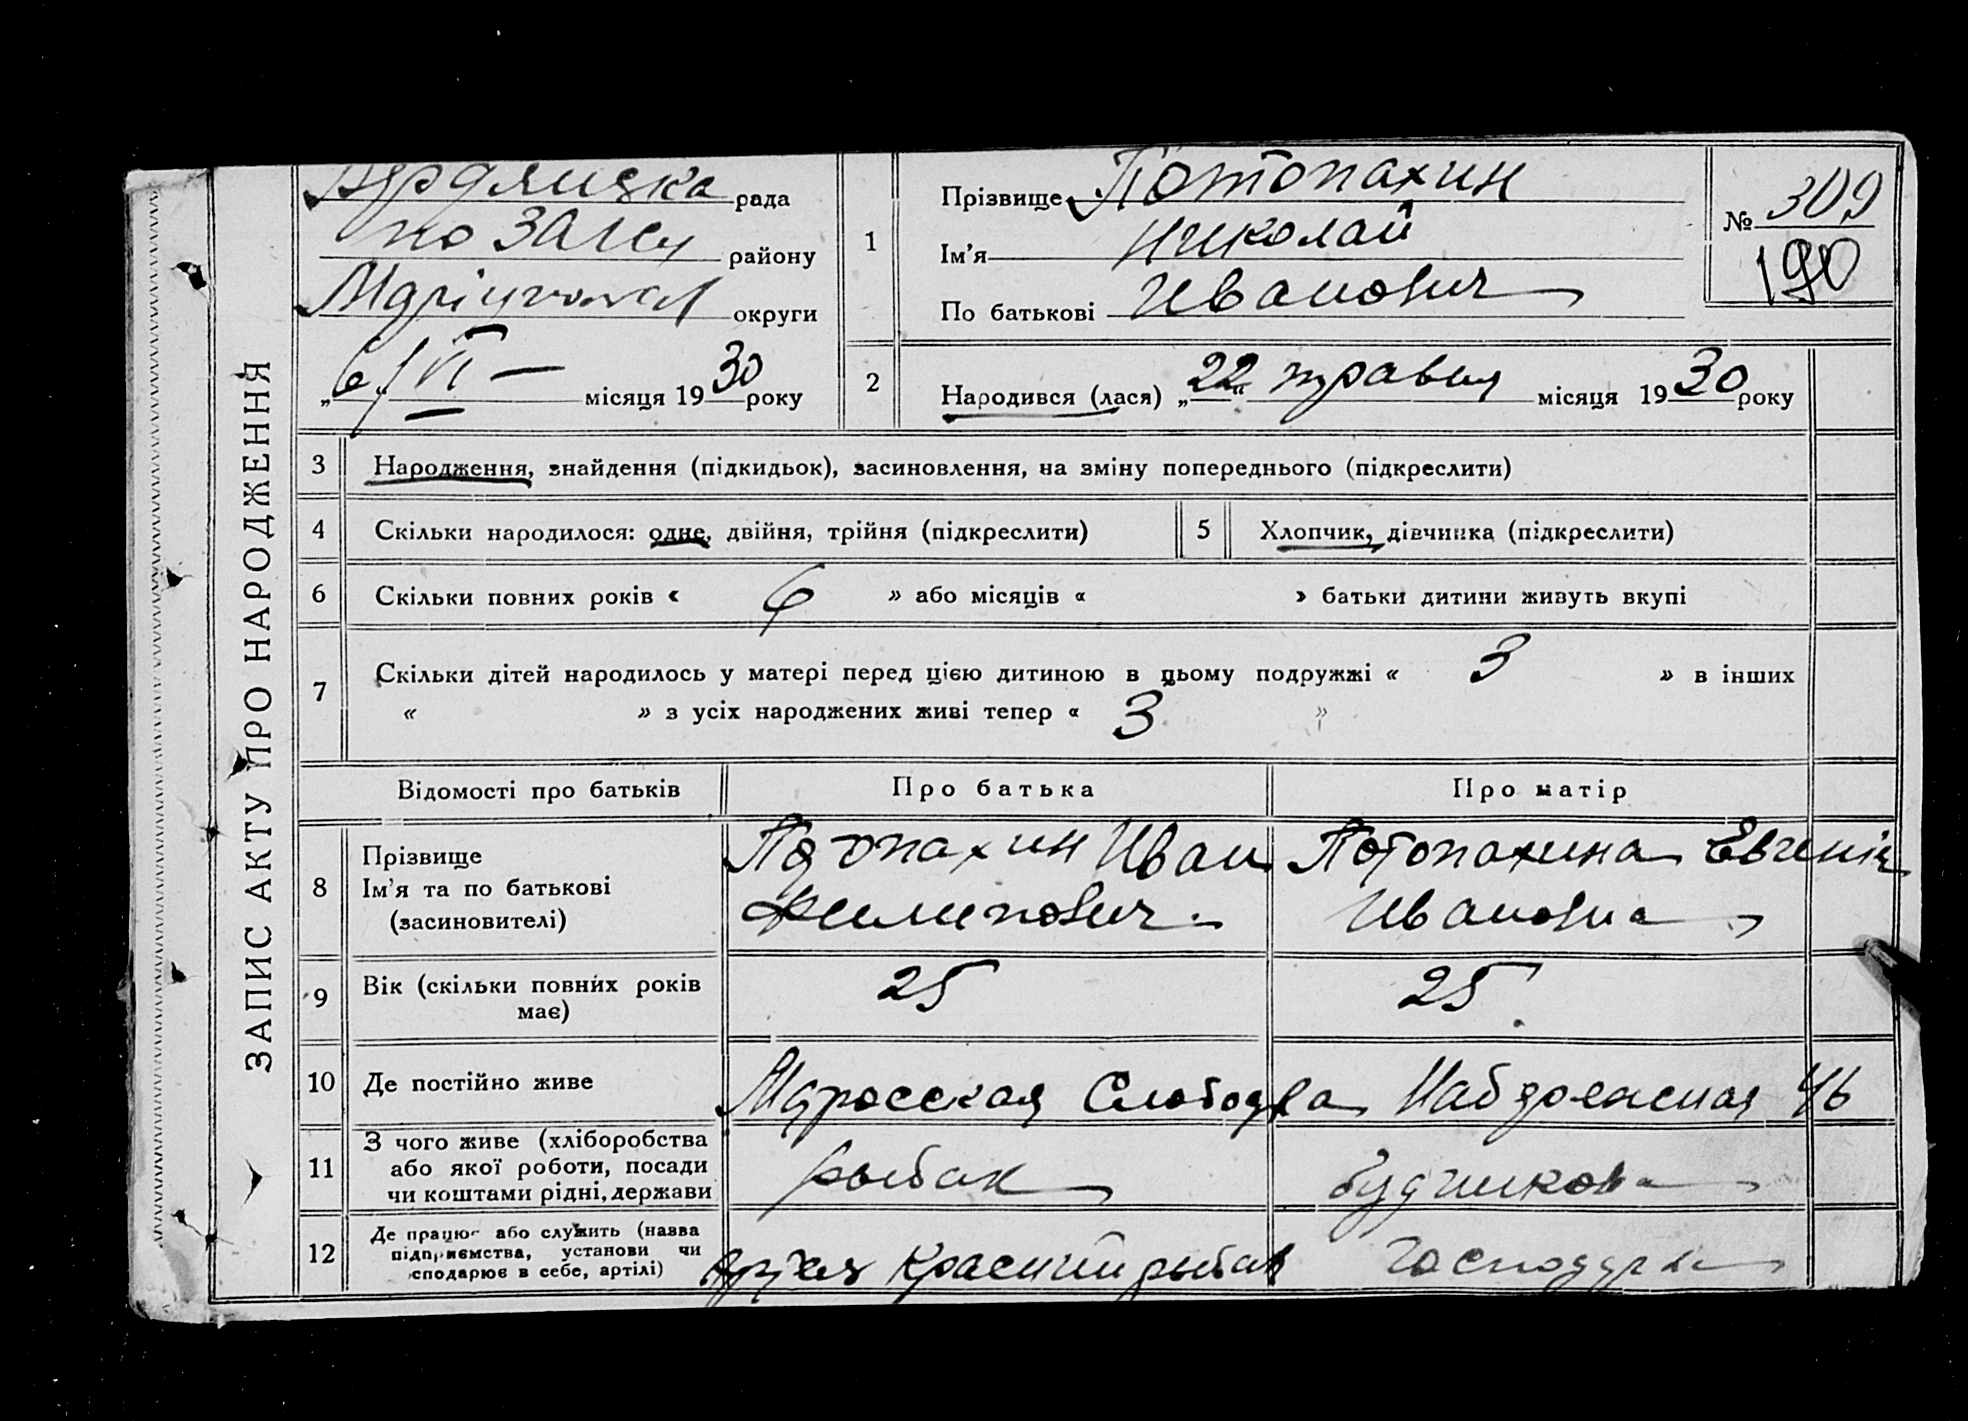 ЗАПИС АКТУ ПРО НАРОДЖЕННЯ
рада
по ЗАГСу району
округи
„6“ VI — місяця 1930 року
1
Прізвище Потопахин
Ім'я Николай
По батькові Иванович
№ 309
190
2
Народився (лася) „22“ травня місяця 1930 року
3 Народження, знайдення (підкидьок), засиновлення, на зміну попереднього (підкреслити)
4 Скільки народилося: одне, двійня, трійня (підкреслити)
5 Хлопчик, дівчинка (підкреслити)
6 Скільки повних років « 6 » або місяців « » батьки дитини живуть вкупі
7 Скільки дітей народилось у матері перед цією дитиною в цьому подружжі « 3 » в інших
« » з усіх народжених живі тепер « 3 »
Відомості про батьків Про батька Про матір
8
Прізвище
Ім'я та по батькові
(засиновителі)
Потопахин Иван
Филипович
Потопахина Евгенія
Ивановна
9
Вік (скільки повних років
має)
25 25
10 Де постійно живе
Матросская Слободка Набережная 46
11
З чого живе (хліборобства
або якої роботи, посади
чи коштами рідні, держави
рыбак
12
Де працює або служить (назва
підприємства, установи чи
сподарює в себе, артілі)
Красный рыбак